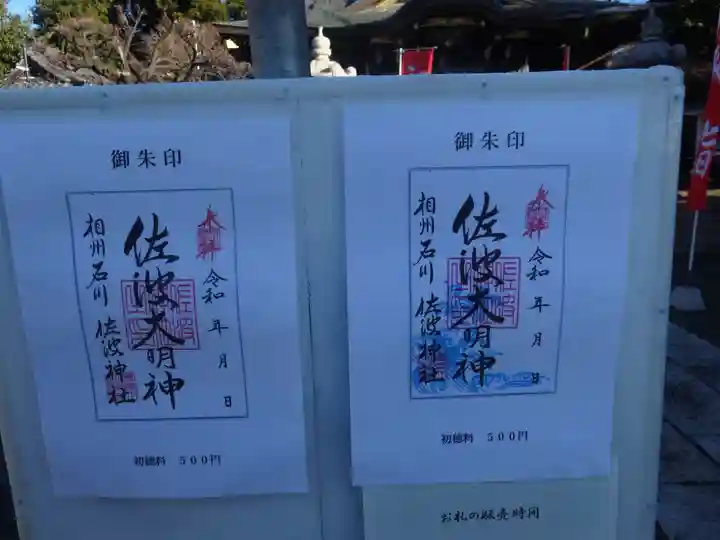 御朱印
奉拝
令和 年 月 日
佐波大明神
相州石川 佐波神社
初穂料 500円
御朱印
奉拝
令和 年 月 日
佐波大明神
相州石川 佐波神社
初穂料 500円
お札の販売時間